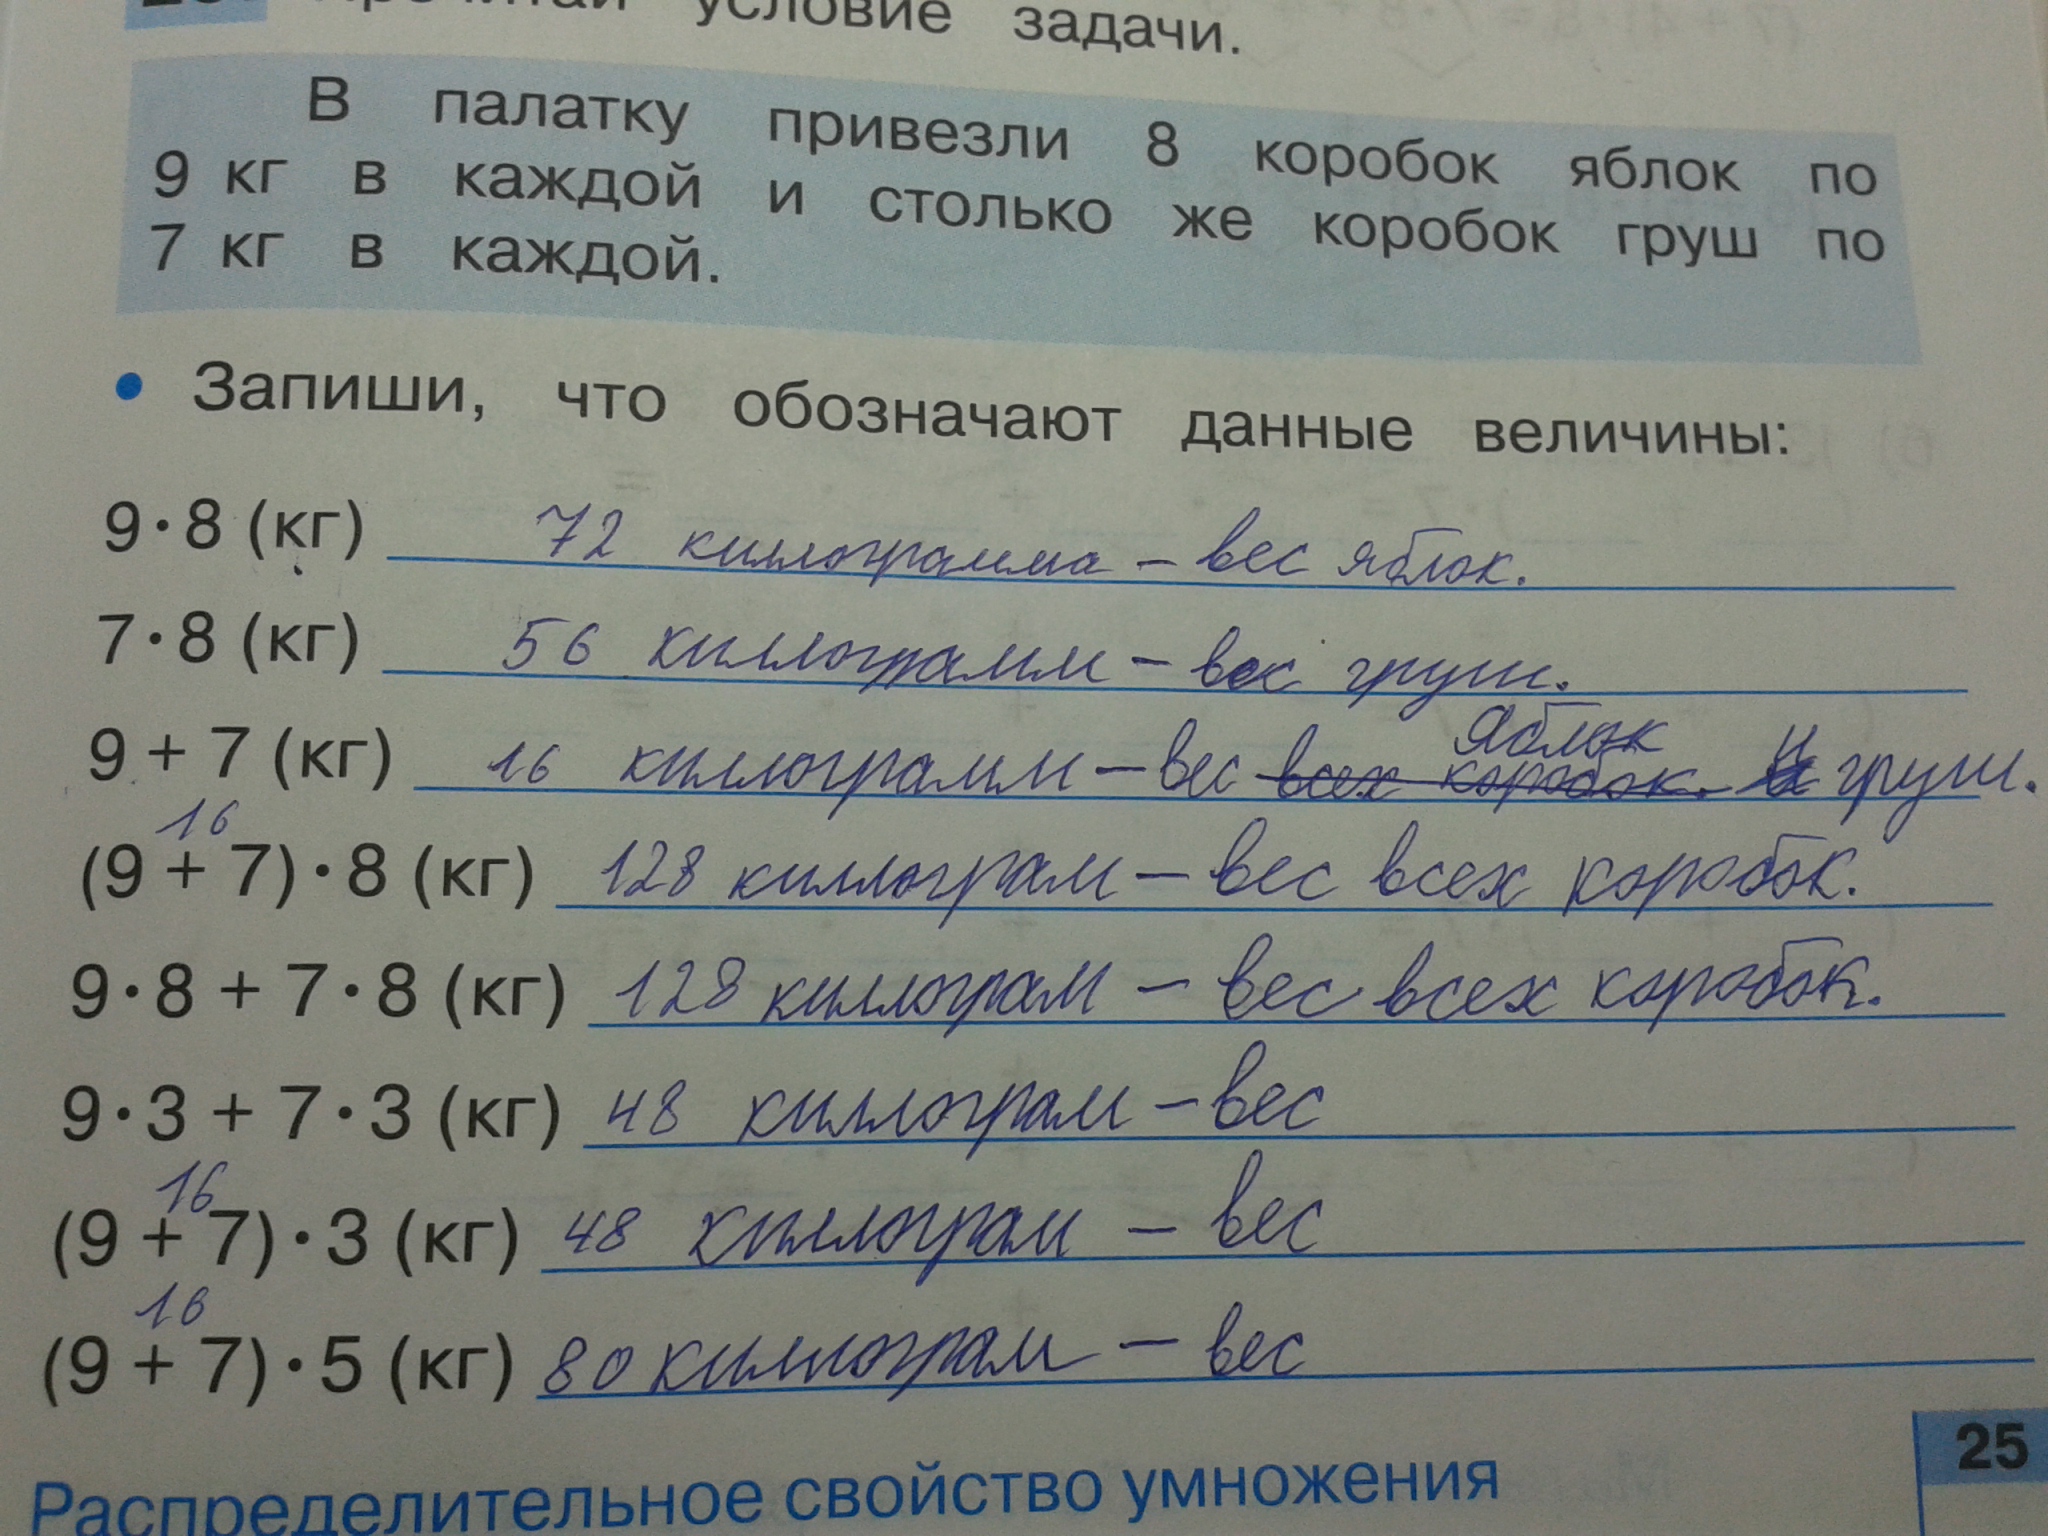 условие задачи.
В палатку привезли 8 коробок яблок по
9 кг в каждой и столько же коробок груш по
7 кг в каждой.
• Запиши, что обозначают данные величины:
9 · 8 (кг) 72 киллограмма – вес яблок.
7 · 8 (кг) 56 киллограмм – вес груш.
яблок
9 + 7 (кг) 16 киллограмм – вес всех коробок. и груш.
16
(9 + 7) · 8 (кг) 128 киллограм – вес всех коробок.
9 · 8 + 7 · 8 (кг) 128 киллограм – вес всех коробок.
9 · 3 + 7 · 3 (кг) 48 киллограм – вес
16
(9 + 7) · 3 (кг) 48 киллограм – вес
16
(9 + 7) · 5 (кг) 80 киллограм – вес
25
Распределительное свойство умножения